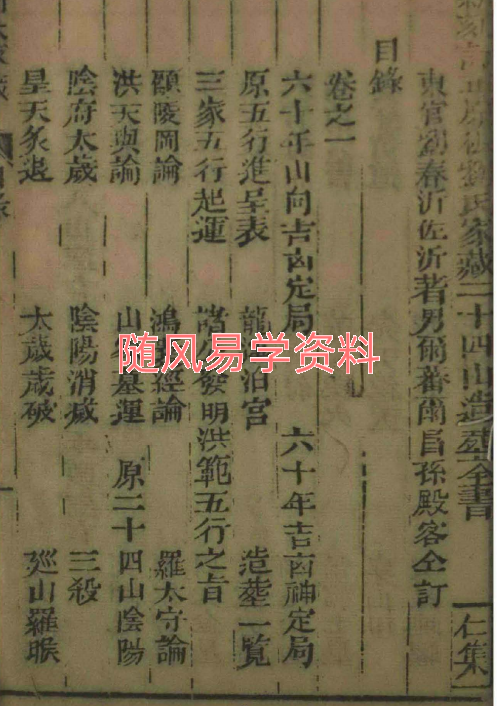 劉氏家藏二十四山造塟全書
仁集
東官劉春沂佐沂著男爾蕃爾昌孫殿客仝訂
目錄
卷之一
六十年山向吉凶定局 六十年吉凶神定局
原五行進呈表 泊宮 造塟一覽
三家五行起運 發明洪範五行之旨
頤陵岡論 論 羅太守論
洪天與論 山 墓運 原二十四山陰陽
陰府太歲 陰陽消滅 三殺
星天炙退 太歲歲破 廵山羅睺
随风易学资料